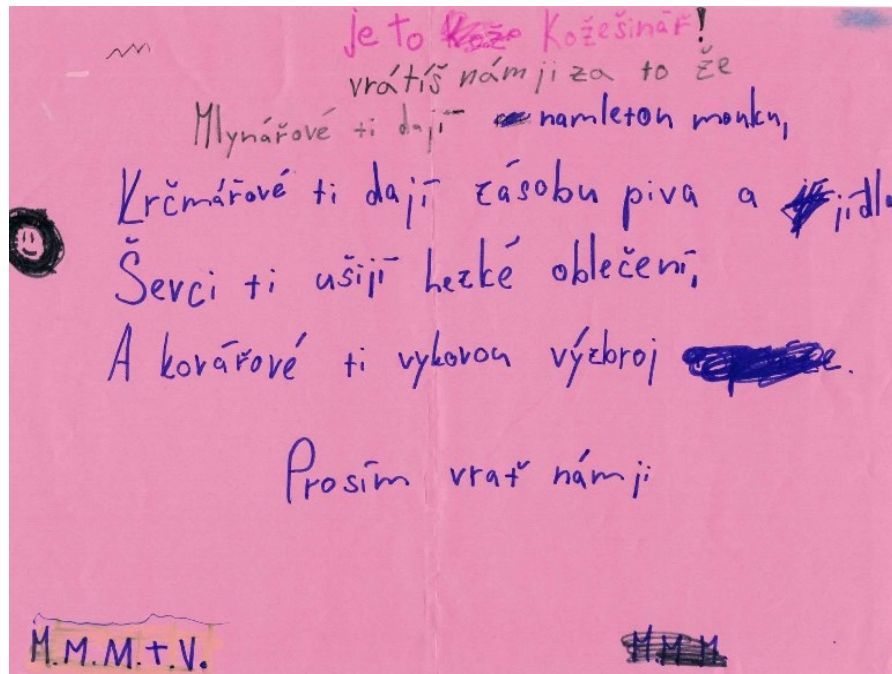 je to Kožešinář!
vrátíš nám ji za to že
Mlynářové ti dají namletou mouku,
Krčmářové ti dají zásobu piva a jídla
Ševci ti ušijí hezké oblečení,
A kovářové ti vykovou výzbroj.
Prosím vrať nám ji
M.M.M.t.V.
M.M.M